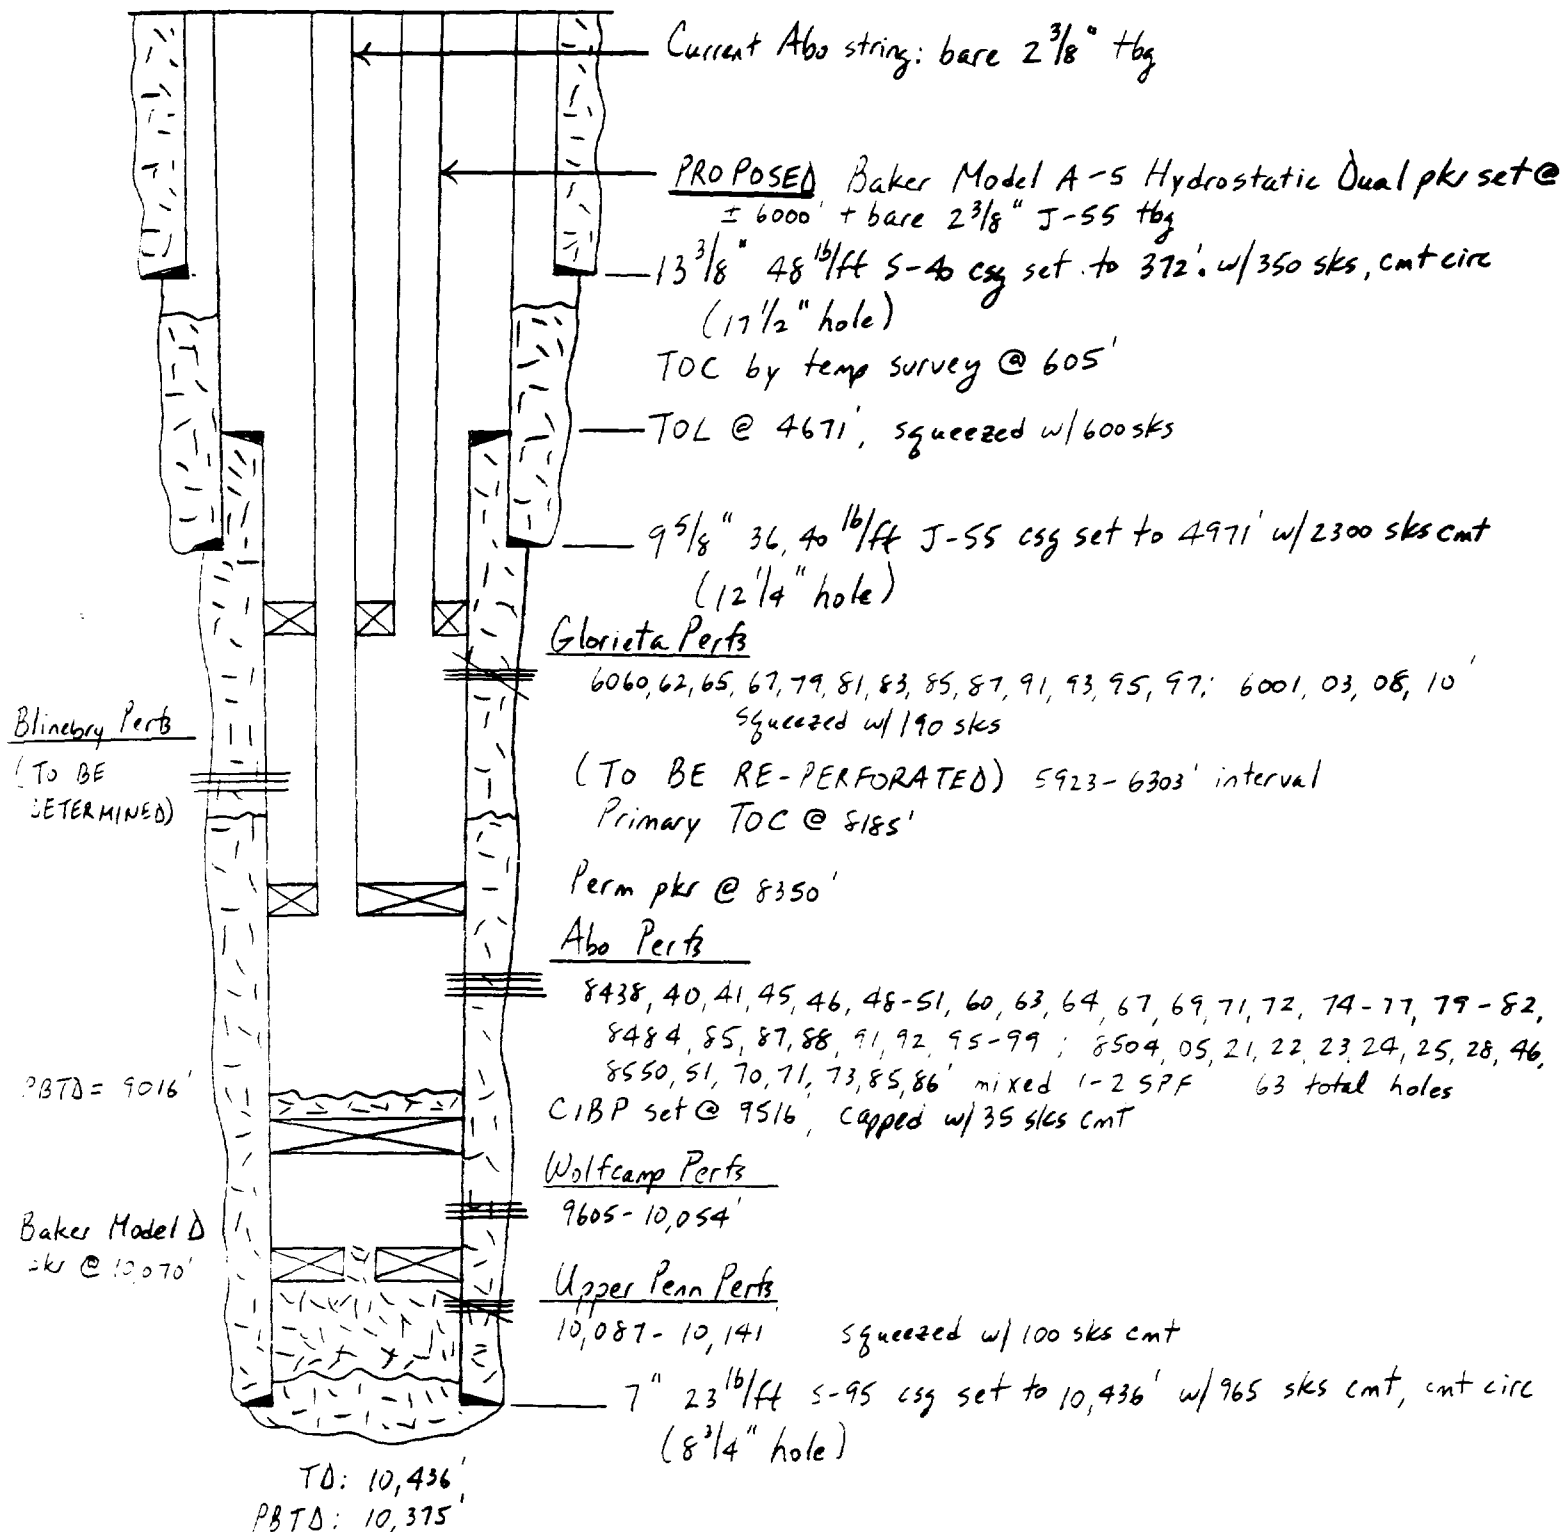 Current Abo string: bare 2 3/8" tbg
PROPOSED Baker Model A-5 Hydrostatic Dual pkr set @
± 6000' + bare 2 3/8" J-55 tbg
13 3/8" 48 lb/ft S-40 csg set to 372'. w/350 sks, cmt circ
(17 1/2" hole)
TOC by temp survey @ 605'
TOL @ 4671', squeezed w/600 sks
9 5/8" 36, 40 lb/ft J-55 csg set to 4971' w/2300 sks cmt
(12 1/4" hole)
Glorieta Perfs
6060, 62, 65, 67, 79, 81, 83, 85, 87, 91, 93, 95, 97; 6001, 03, 08, 10'
squeezed w/190 sks
Blinebry Perfs
(TO BE
DETERMINED)
(TO BE RE-PERFORATED) 5923-6303' interval
Primary TOC @ 8185'
Perm pkr @ 8350'
Abo Perfs
8438, 40, 41, 45, 46, 48-51, 60, 63, 64, 67, 69, 71, 72, 74-77, 79-82,
8484, 85, 87, 88, 91, 92, 95-99; 8504, 05, 21, 22, 23, 24, 25, 28, 46,
8550, 51, 70, 71, 73, 85, 86' mixed 1-2 SPF 63 total holes
PBTD = 9016'
CIBP set @ 9516, capped w/35 sks cmt
Wolfcamp Perfs
9605-10,054'
Baker Model D
pkr @ 10,070'
Upper Penn Perfs
10,087-10,141 squeezed w/100 sks cmt
7" 23 lb/ft S-95 csg set to 10,436' w/965 sks cmt, cmt circ
(8 3/4" hole)
TD: 10,436'
PBTD: 10,375'